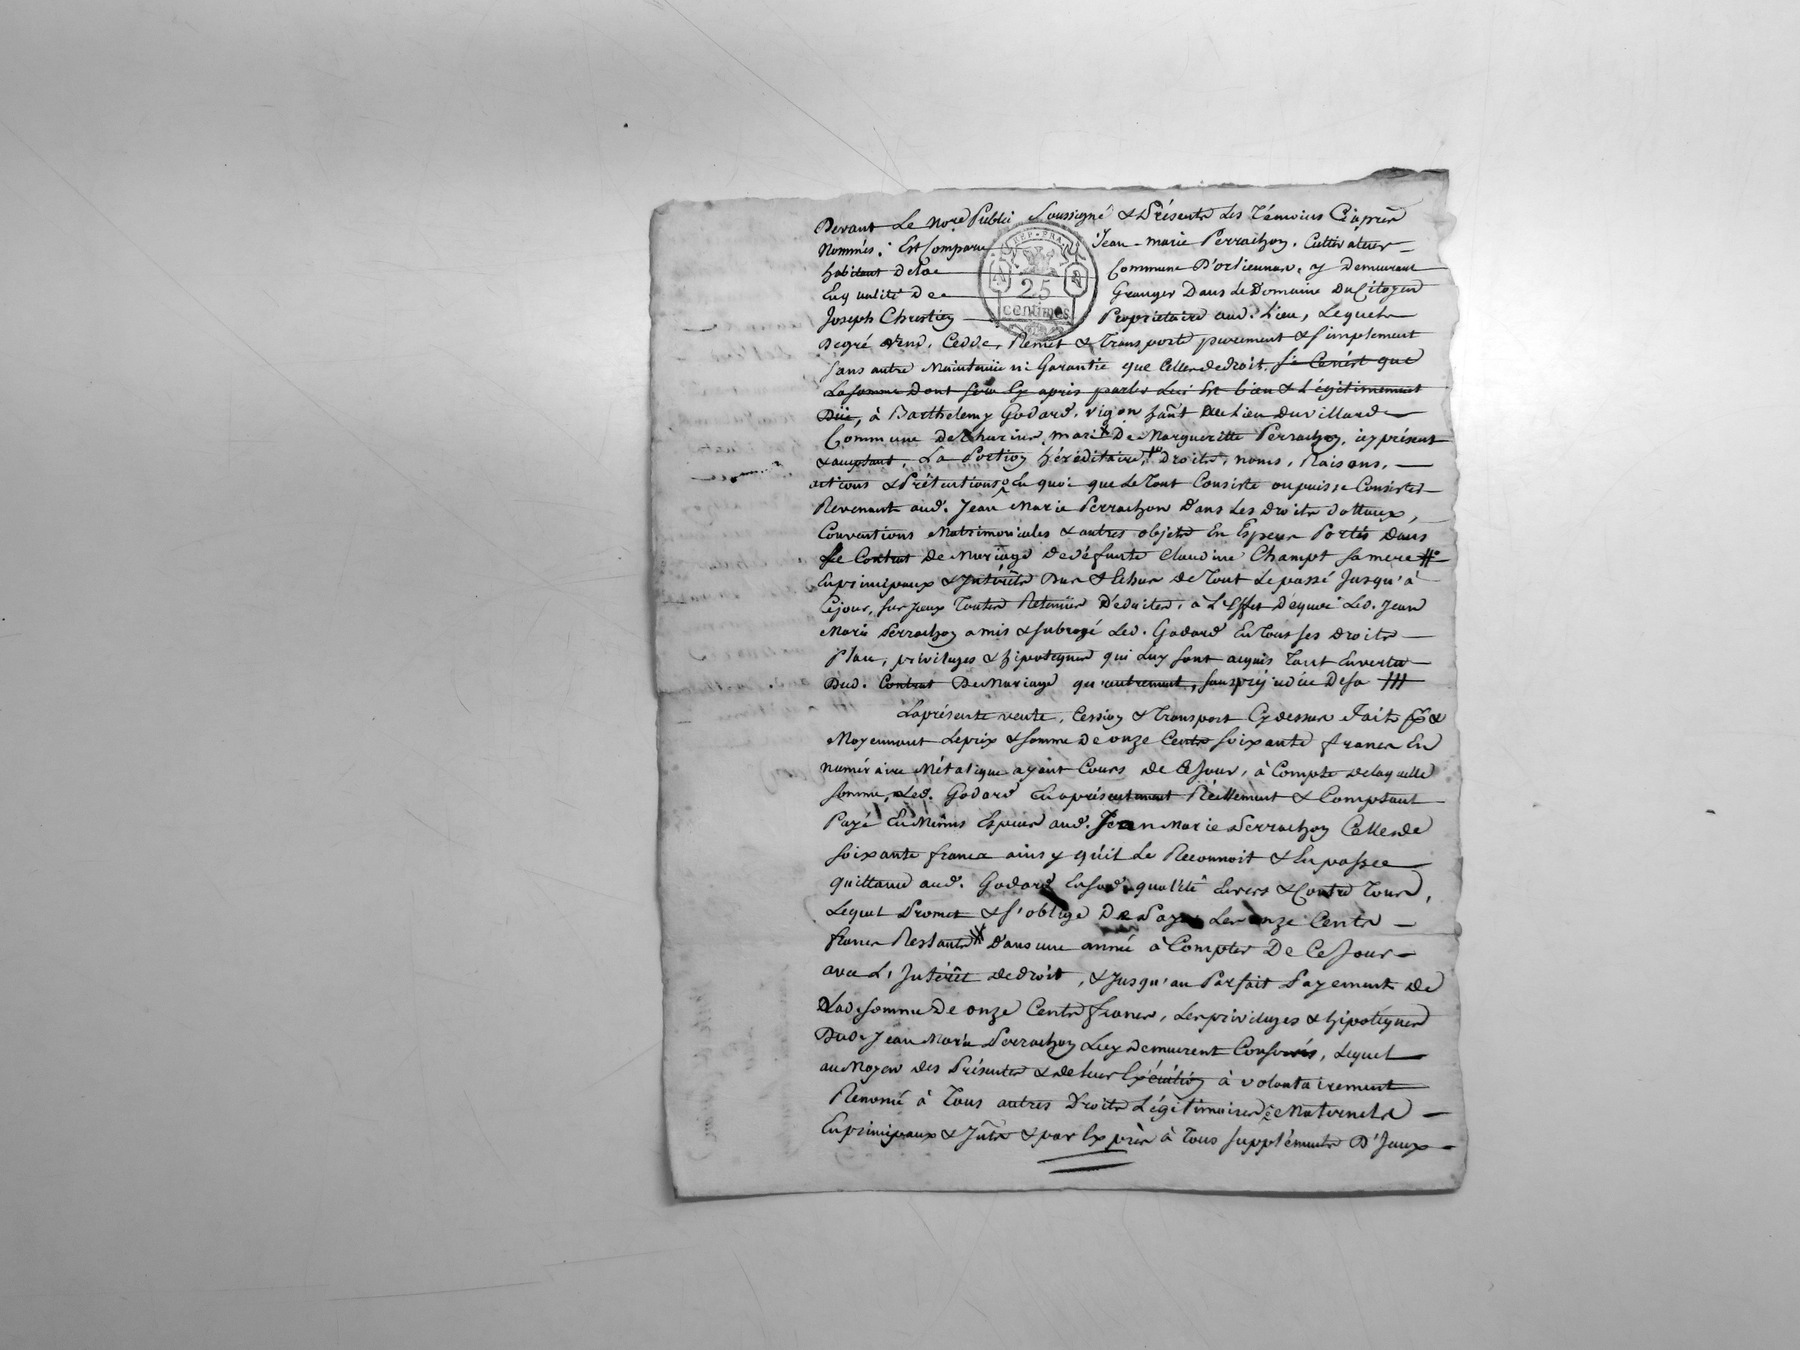 Devant Le No.re Public Soussigné & Présents Les Témoins Ciaprès
Nommés. Est Comparu Jean-marie Perrachon. Cultivateur
habitant dela Commune D'orlienas, y demeurant
Enqualité De Granger Dans Le Domaine Du Citoyen
Joseph Chrestien Propriétaire aud. Lieu, Lequel
Degré vend, Cedde, Remet & Transporte purement & simplement
sans autre Maintenüe ni Garantie que Celle de droit, Si Cen'ést que
La somme Dont sera Cy après parlé Lui Est bien & Légitimement
Düe, à Barthelemy Godard, vigon hant Du Lieu Duvillard
Commune de Thurins, mari De Margueritte Perrachon, icy présent
& acceptant, La Portion héréditaire, Droits, noms, Raisons,
actions & Prétentions En quoi que Le Tout Consiste ou puisse Consister
Revenant aud. Jean Marie Perrachon Dans Les Droits dottaux,
Conventions Matrimoniales & autres objets En Espece Portés Dans
Le Contrat De Mariage de défunte Claudine Champt sa mere
En principaux & Intérêts Dus & Echus de Tout Le passé Jusqu'à
Cejour, sur Iceux Toutes Retenües Déduites, à L'Effet Dequoi Led. Jean
Marie Perrachon a mis & subrogé Led. Godard En Tous ses Droits
Place, privileges & hipoteques qui Luy sont acquis Tant Envertu
Dud. Contrat De Mariage qu'autrement, sans préjudice De sa
La présente vente, Cession & Transport Cy dessus Faits
Moyennant Le prix & somme De onze Cents soixante francs En
numéraire Métalique ayant Cours de Ce Jour, à Compte de laquelle
somme, Led. Godard En a présentement Réellement & Comptant
Payé En Mêmes Especes aud. Jean Marie Perrachon Celle de
soixante francs ainsy qu'il Le Reconnoit & En passe
quittance aud. Godard En sad. qualité Envers & Contre Tous,
Lequel Promet & s'oblige De Payer Les onze Cents
francs Restants Dans une année à Compter De Ce Jour
avec L'Intérêt de droit, & Jusqu'au Parfait Payement de
Lad. somme De onze Cents francs, Les privileges & hipoteques
Dud. Jean Marie Perrachon Luy Demeurent Conservés, Lequel
au Moyen des Présentes & de Leur Exécution à volontairement
Renoncé à Tous autres Droits Légitimaires Maternels
En principaux & Jnts & par Exprès à Tous suppléments D'Iceux
REP. FRA.
25
centimes